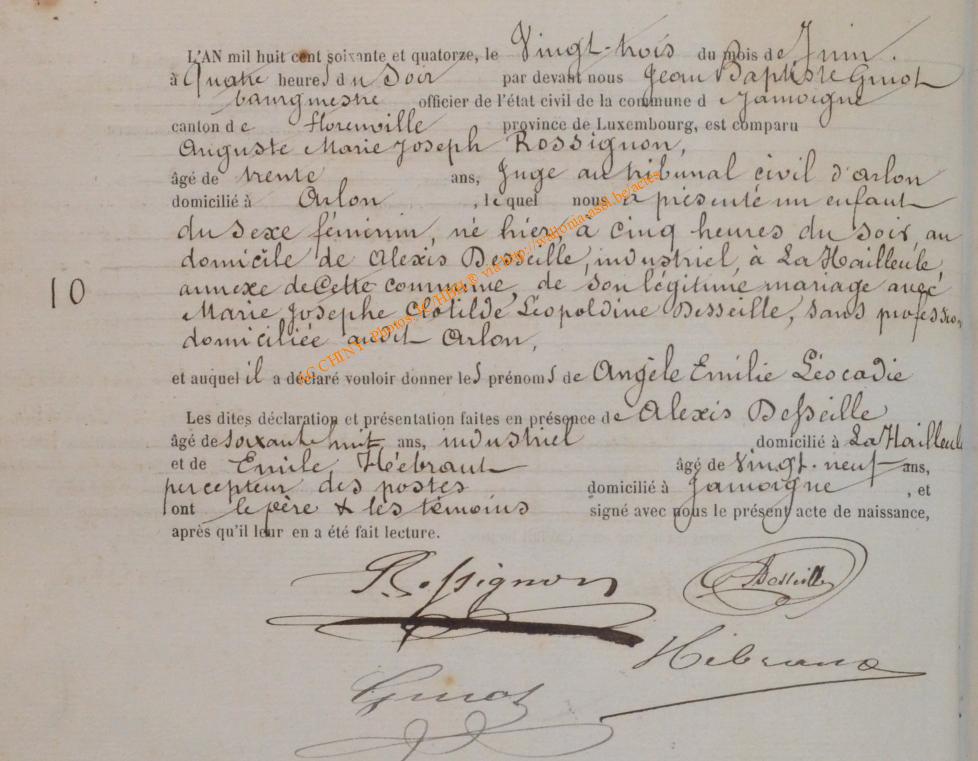 L'AN mil huit cent soixante et quatorze, le Vingt-trois du mois de Juin.
à Quatre heures du Soir par devant nous Jean Baptiste Guiot
bourgmestre officier de l'état civil de la commune de Jamoigne
canton de Florenville province de Luxembourg, est comparu
Auguste Marie Joseph Rossignon,
âgé de trente ans, Juge au tribunal civil d'Arlon
domicilié à Arlon, lequel nous a présenté un enfant
du sexe féminin, né hier, à cinq heures du soir, au
domicile de Alexis Desseille, industriel, à La Hailleule,
10
annexe de Cette commune, de son légitime mariage avec
Marie Josephe Clotilde Léopoldine Desseille, sans profession
domiciliée audit Arlon,
et auquel il a déclaré vouloir donner les prénoms de Angèle Emilie Léocadie
Les dites déclaration et présentation faites en présence de Alexis Desseille
âgé de soixante huit ans, industriel domicilié à La Hailleule
et de Emile Hébrant âgé de vingt-neuf ans,
percepteur des postes domicilié à Jamoigne, et
ont le père & les témoins signé avec nous le présent acte de naissance,
après qu'il leur en a été fait lecture.
Rossignon
Desseille
Hébrant
Guiot
LC CHINY - Photos: JC/HBH ® via http://wallonia-asbl.be/actes